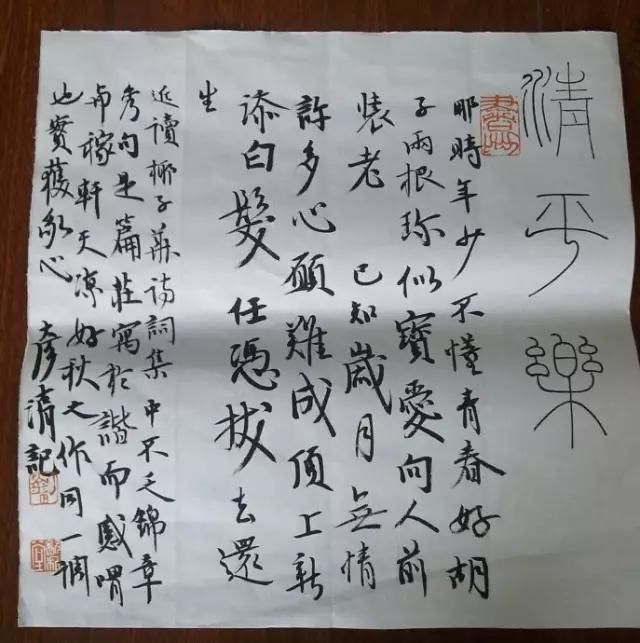 清平樂
那時年少不懂青春好胡
子兩根珍似寶愛向人前
裝老 已知歲月無情
許多心願難成頂上新
添白髮任憑拔去還
生
近讀椰子蘇詩詞集中不乏錦章
秀句是篇莊寫於諧而感喟
與稼軒天涼好秋之作同一調
也實獲我心 彥清記